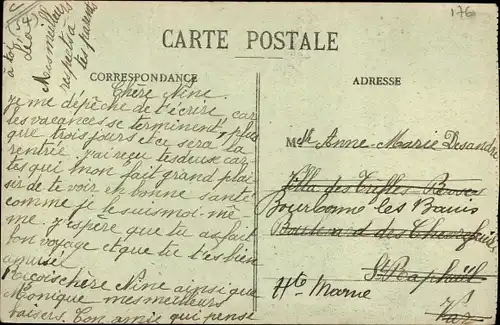 176
à toi
Léo
Mes meilleurs
respects à
tes parents
CARTE POSTALE
CORRESPONDANCE
ADRESSE
Chère Nine.
Je me dépêche de t'écrire car
les vacances se terminent, plus
que trois jours et ce sera la
rentrée. j'ai reçu tes deux car-
tes qui m'on fait grand plai-
sir de te voir en bonne santé
comme je le suis moi-mê-
me. j'espère que tu as fait
bon voyage et que tu t'es bien
amusé.
Reçois chère Nine ainsi que
Monique mes meilleurs
baisers. Ton amie qui pense
Mlle Anne-Marie Desandre
Villa des Trèfles Roses
Bourbonne les Bains
Boulevard des
St Raphaël
Hte Marne
Var